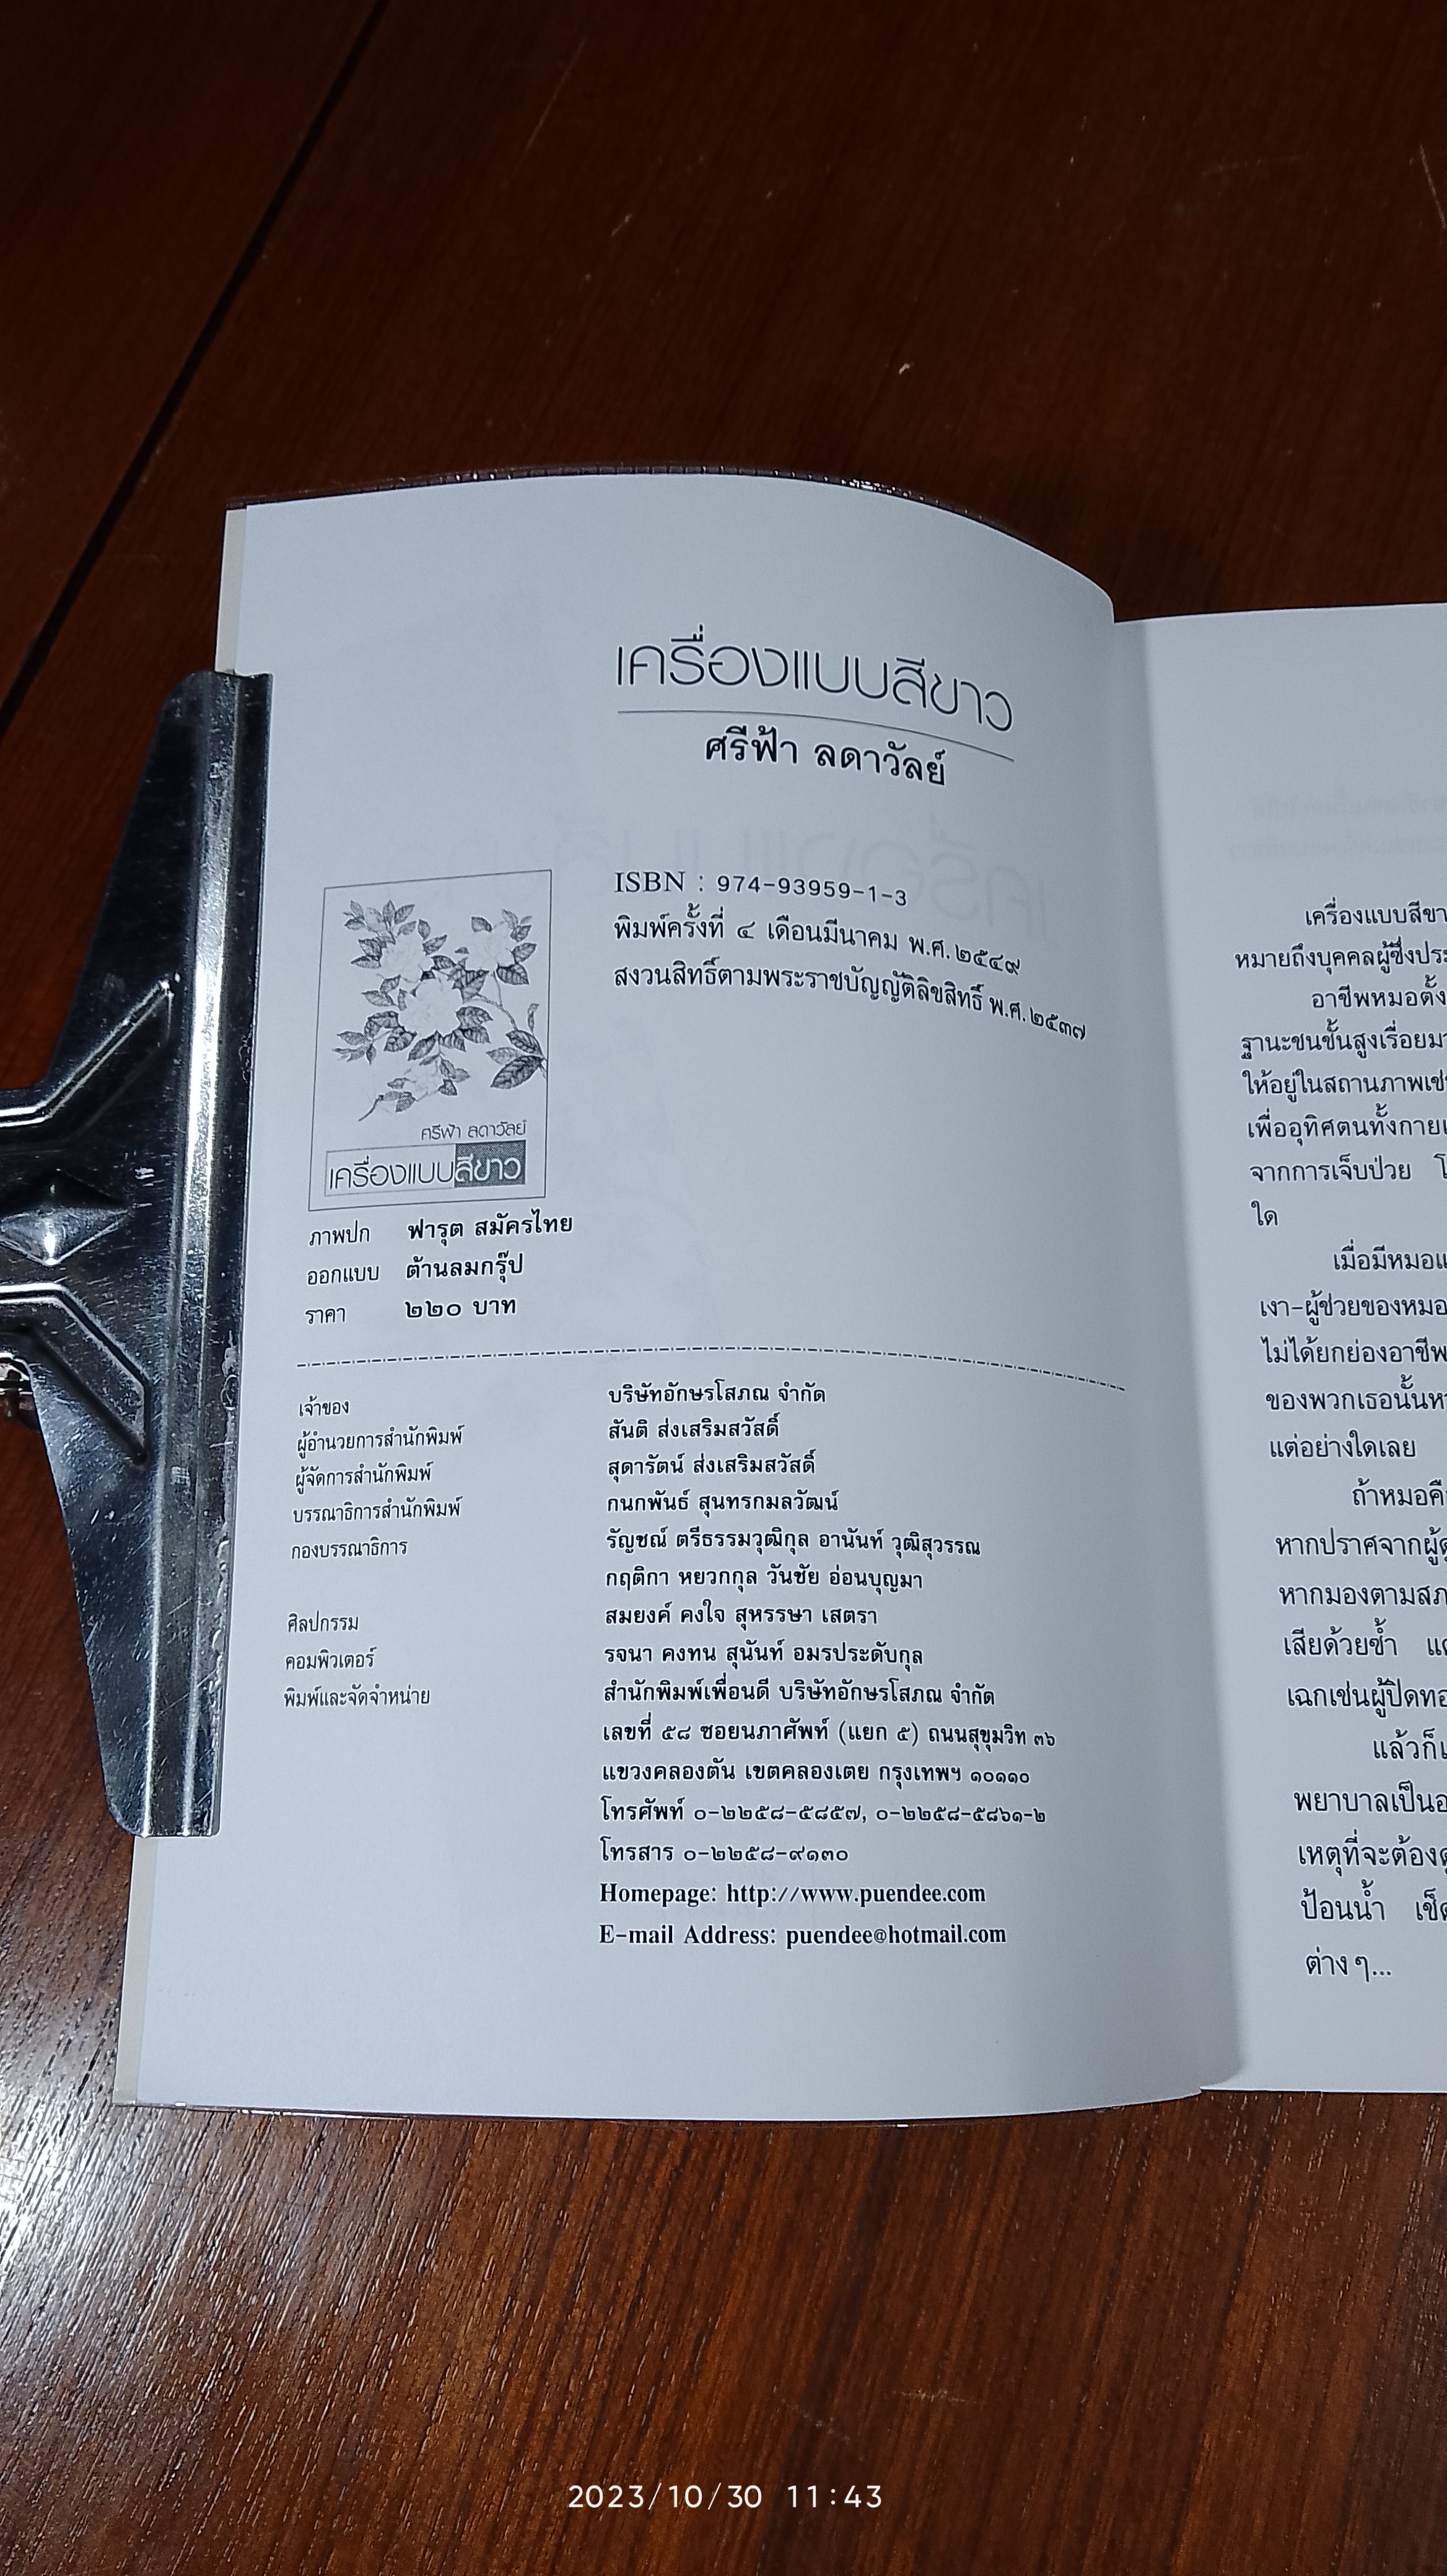 เครื่องแบบสีขาว
ศรีฟ้า ลดาวัลย์
ISBN : 974-93959-1-3
พิมพ์ครั้งที่ ๔ เดือนมีนาคม พ.ศ. ๒๕๔๙
สงวนสิทธิ์ตามพระราชบัญญัติลิขสิทธิ์ พ.ศ. ๒๕๓๗
ศรีฟ้า ลดาวัลย์
เครื่องแบบสีขาว
ภาพปก ฟารุต สมัครไทย
ออกแบบ ต้านลมกรุ๊ป
ราคา ๒๒๐ บาท
เจ้าของ บริษัทอักษรโสภณ จำกัด
ผู้อำนวยการสำนักพิมพ์ สันติ ส่งเสริมสวัสดิ์
ผู้จัดการสำนักพิมพ์ สุดารัตน์ ส่งเสริมสวัสดิ์
บรรณาธิการสำนักพิมพ์ กนกพันธ์ สุนทรกมลวัฒน์
กองบรรณาธิการ รัญชณ์ ตรีธรรมวุฒิกุล อานันท์ วุฒิสุวรรณ
กฤติกา หยวกกุล วันชัย อ่อนบุญมา
ศิลปกรรม สมยงค์ คงใจ สุหรรษา เสตรา
คอมพิวเตอร์ รจนา คงทน สุนันท์ อมรประดับกุล
พิมพ์และจัดจำหน่าย สำนักพิมพ์เพื่อนดี บริษัทอักษรโสภณ จำกัด
เลขที่ ๕๘ ซอยนภาศัพท์ (แยก ๕) ถนนสุขุมวิท ๓๖
แขวงคลองตัน เขตคลองเตย กรุงเทพฯ ๑๐๑๑๐
โทรศัพท์ ๐-๒๒๕๘-๕๘๕๗, ๐-๒๒๕๘-๕๘๖๑-๒
โทรสาร ๐-๒๒๕๘-๙๑๓๐
Homepage: http://www.puendee.com
E-mail Address: puendee@hotmail.com
เครื่องแบบสีขา
หมายถึงบุคคลผู้ซึ่งประ
อาชีพหมอตั้ง
ฐานะชนชั้นสูงเรื่อยมา
ให้อยู่ในสถานภาพเช่
เพื่ออุทิศตนทั้งกายแ
จากการเจ็บป่วย โ
ใด
เมื่อมีหมอแ
เงา-ผู้ช่วยของหมอ
ไม่ได้ยกย่องอาชีพ
ของพวกเธอนั้นห
แต่อย่างใดเลย
ถ้าหมอคื
หากปราศจากผู้ดู
หากมองตามสภ
เสียด้วยซ้ำ แต
เฉกเช่นผู้ปิดทอ
แล้วก็เ
พยาบาลเป็นอ
เหตุที่จะต้องดู
ป้อนน้ำ เช็ด
ต่าง ๆ...
2023/10/30 11:43